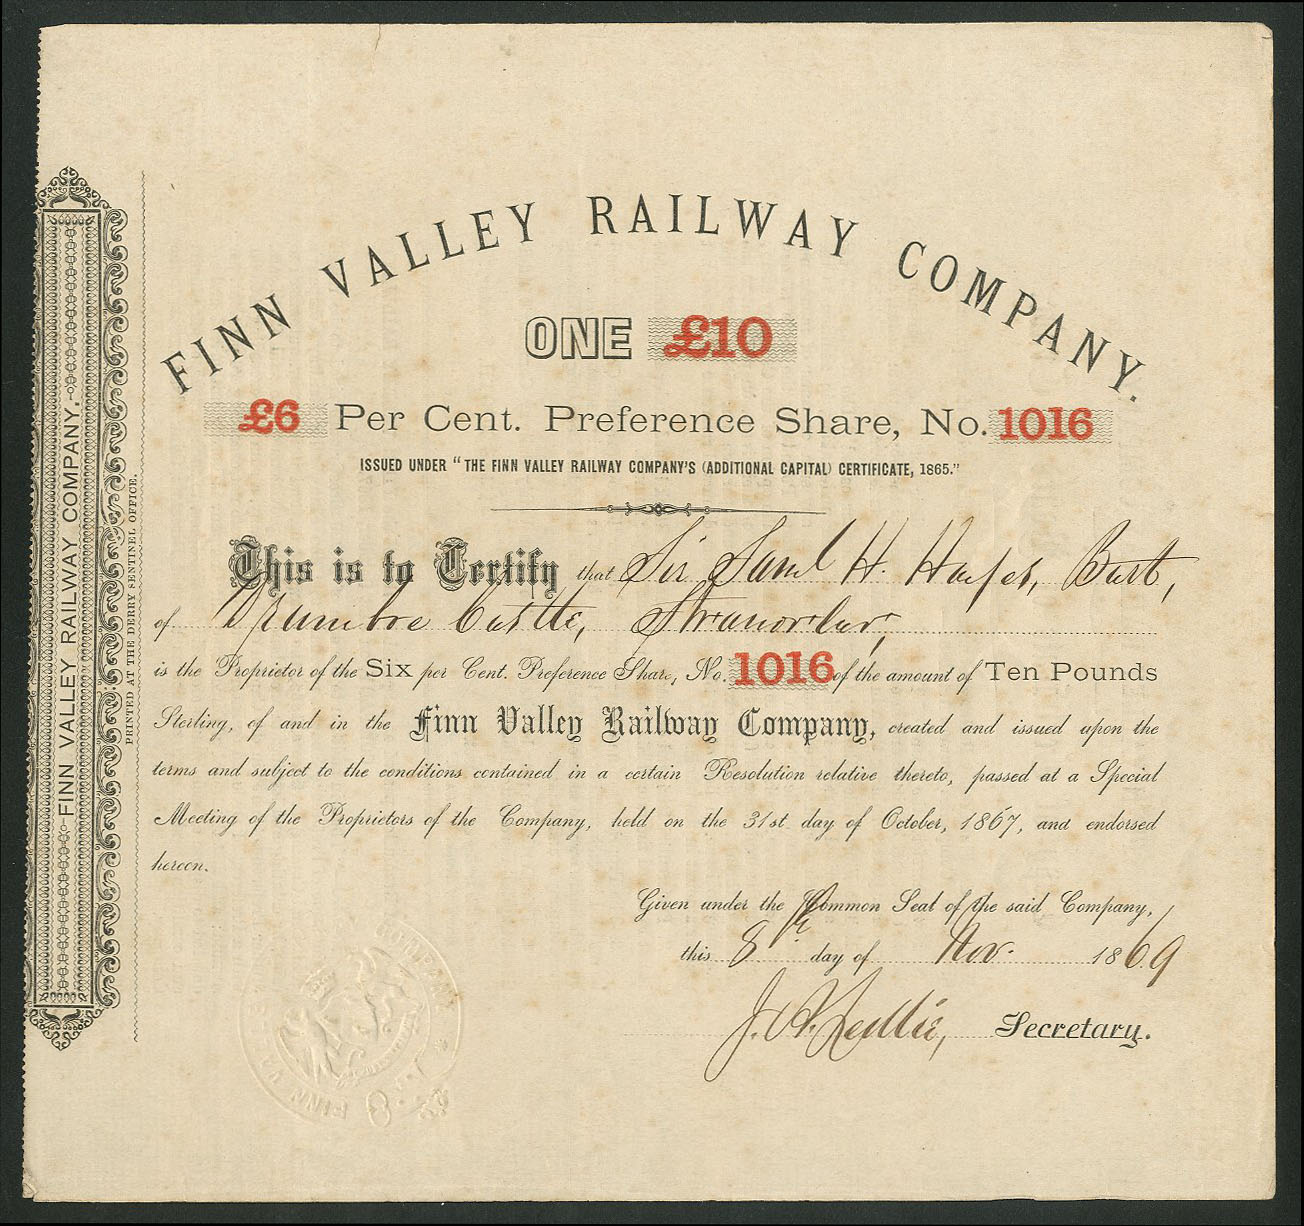 FINN VALLEY RAILWAY COMPANY.
ONE £10
£6 Per Cent. Preference Share, No. 1016
ISSUED UNDER "THE FINN VALLEY RAILWAY COMPANY'S (ADDITIONAL CAPITAL) CERTIFICATE, 1865."
This is to Certify that Sir Saml H. Hayes, Bart,
of Drumboe Castle, Stranorlar,
is the Proprietor of the Six per Cent. Preference Share, No. 1016 of the amount of Ten Pounds
Sterling, of and in the Finn Valley Railway Company, created and issued upon the
terms and subject to the conditions contained in a certain Resolution relative thereto, passed at a Special
Meeting of the Proprietors of the Company, held on the 31st day of October, 1867, and endorsed
hereon.
Given under the Common Seal of the said Company,
this 8th day of Nov. 1869
Secretary.
FINN VALLEY RAILWAY COMPANY.
PRINTED AT THE DERRY SENTINEL OFFICE.